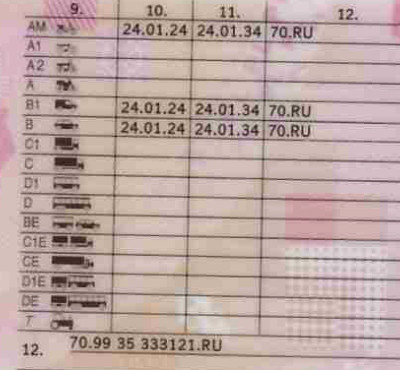 9. 10. 11. 12.
AM 24.01.24 24.01.34 70.RU
A1
A2
A
B1 24.01.24 24.01.34 70.RU
B 24.01.24 24.01.34 70.RU
C1
C
D1
D
BE
C1E
CE
D1E
DE
T
12. 70.99 35 333121.RU